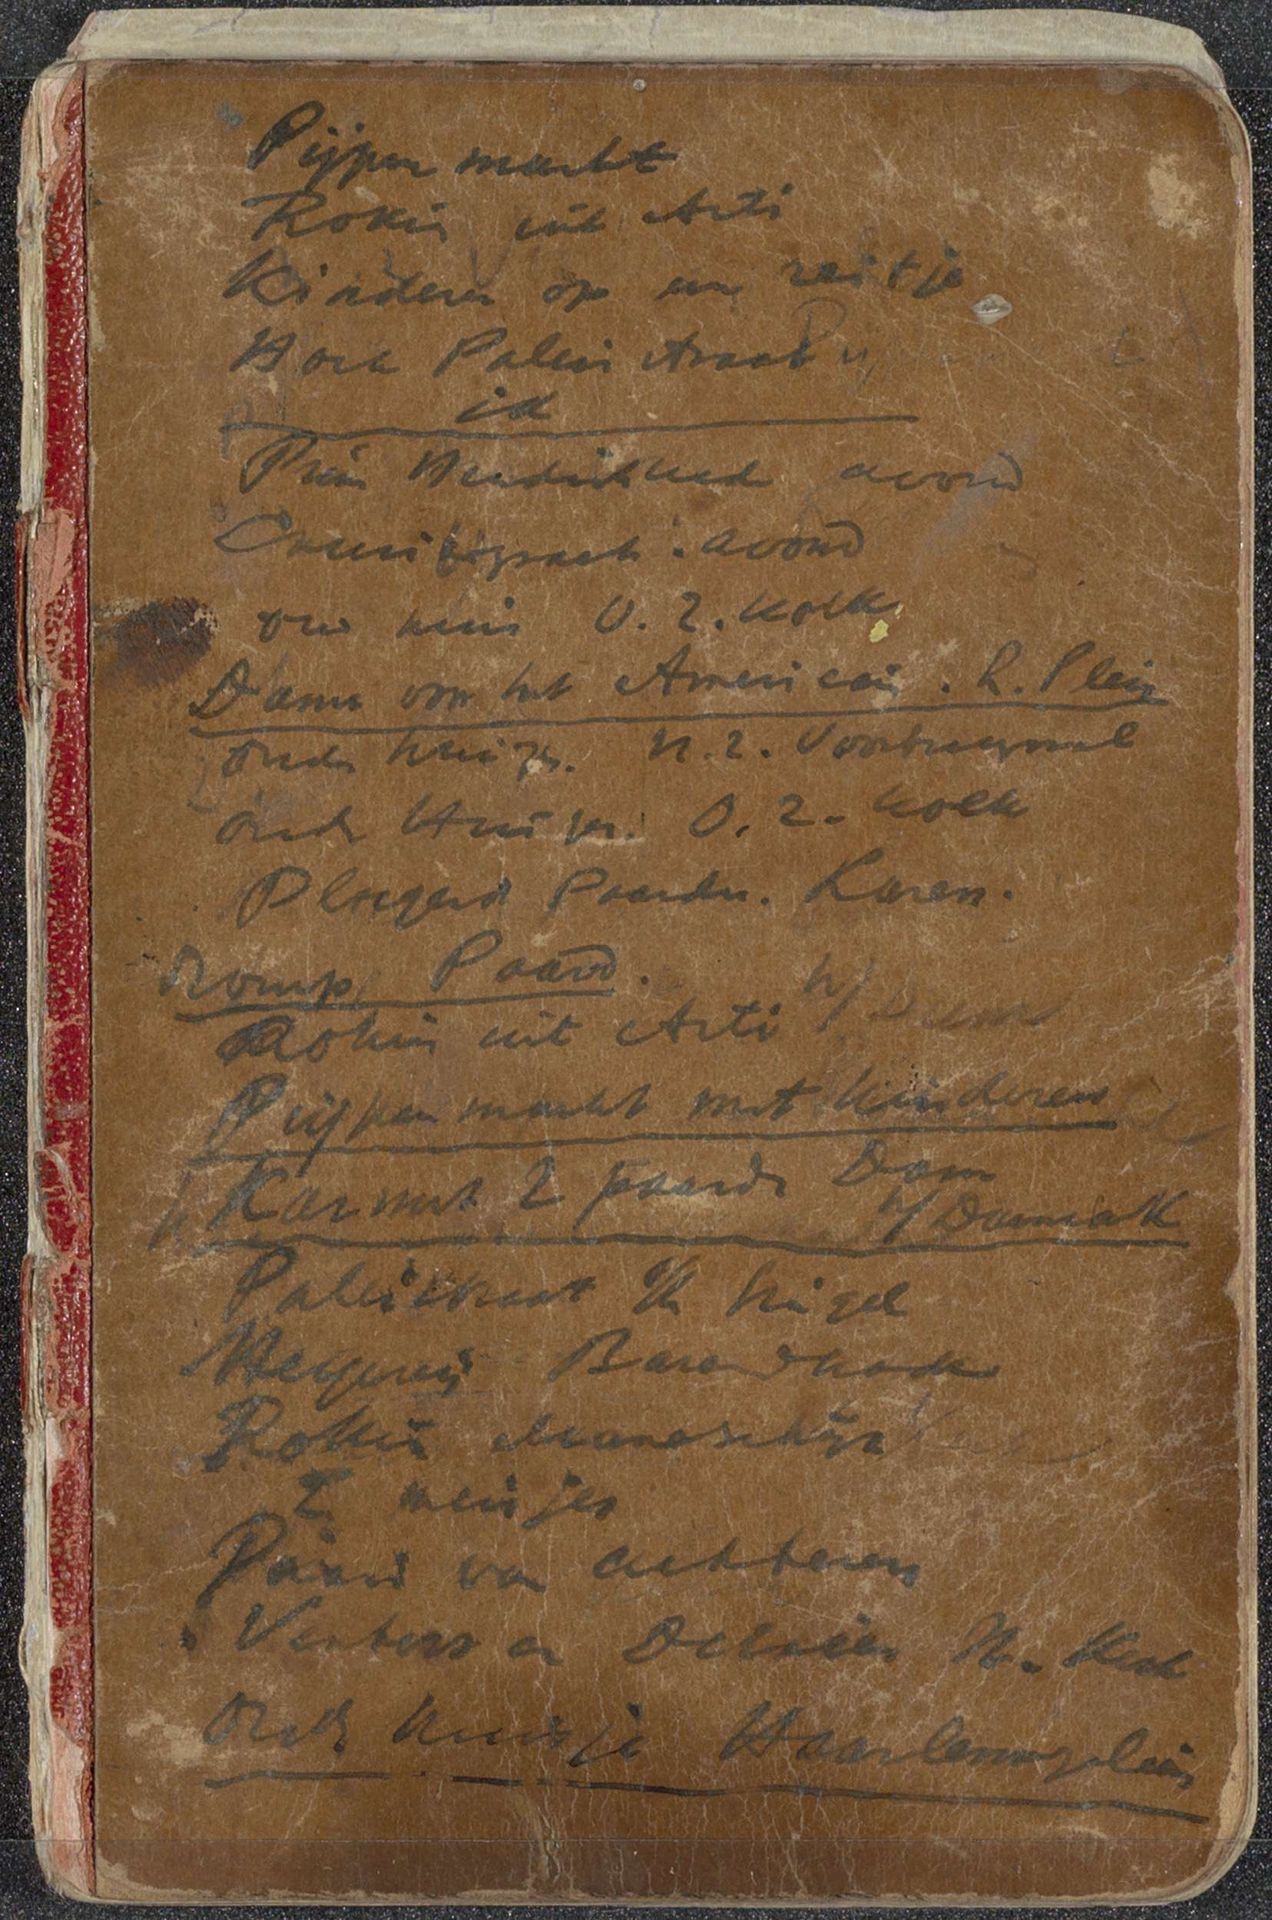 Pijpen markt
Rokin uit Arti
Kinderen op een
Hoek Paleis straat
id
Prins Hendrikkade avond
avond
oud huis O.Z. Kolk
Dames voor het Americain. L. Plein
oude huizen. N.Z. Voorburgwal
oude Huizen. O.Z. Kolk
Ploegend Paarden. Laren.
Romp Paard.
Rokin uit Arti h/ Dam
Pijpen markt met kinderen
Kar met 2 paarden Dam
h/ Damrak
Paleisstraat h/ Singel
Rokin
2 meisjes
Paard van achteren
en N. Kerk
Oude huisje Haarlemmerplein